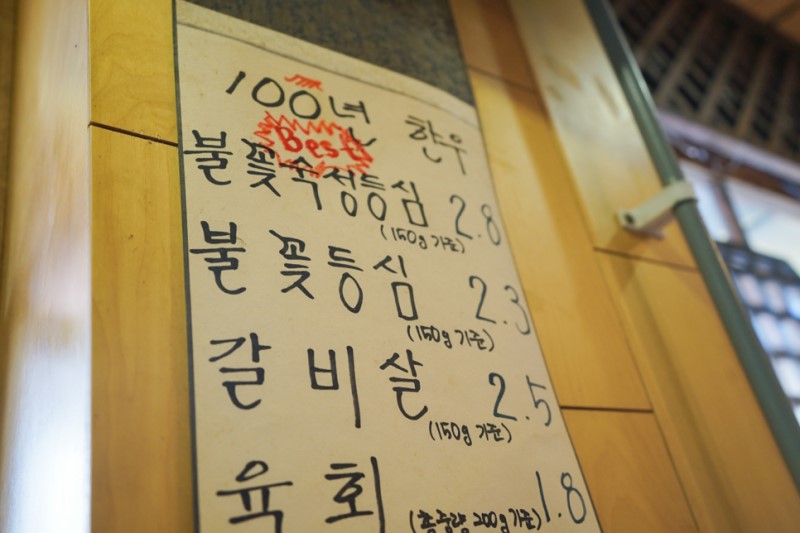 100년 한우
Best
불꽃숙성등심 2.8
(150g 기준)
불꽃등심 2.3
(150g 기준)
갈비살 2.5
(150g 기준)
육회 1.8
(총중량 200g 기준)